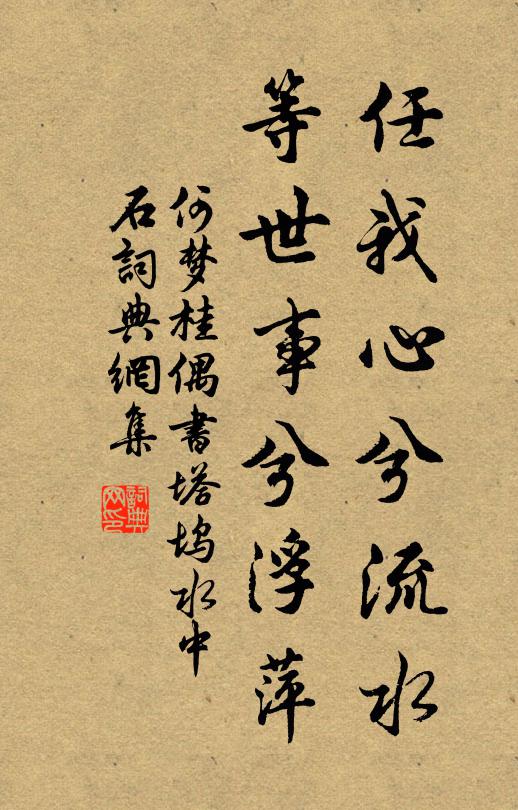 任我心兮流水
等世事兮浮萍
何梦桂偶書塔坞水中
石詞典網集
詞典
网印